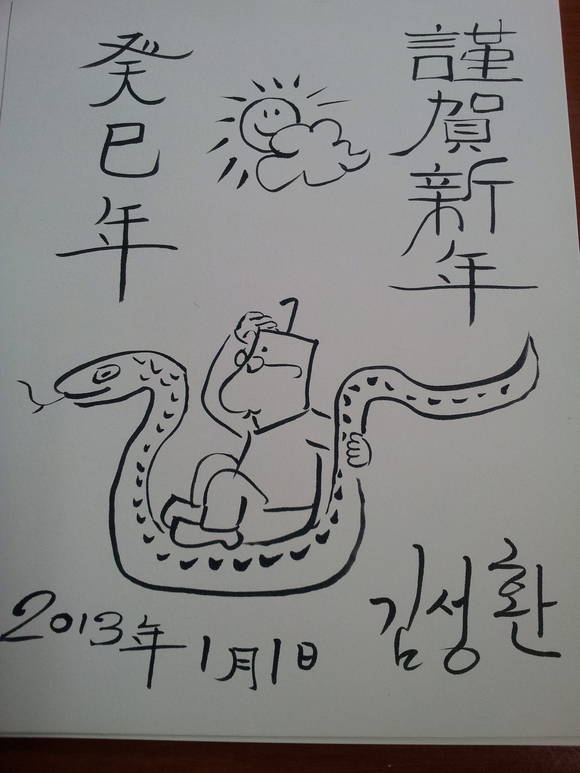 謹賀新年
癸巳年
2013年 1月1日
김성환